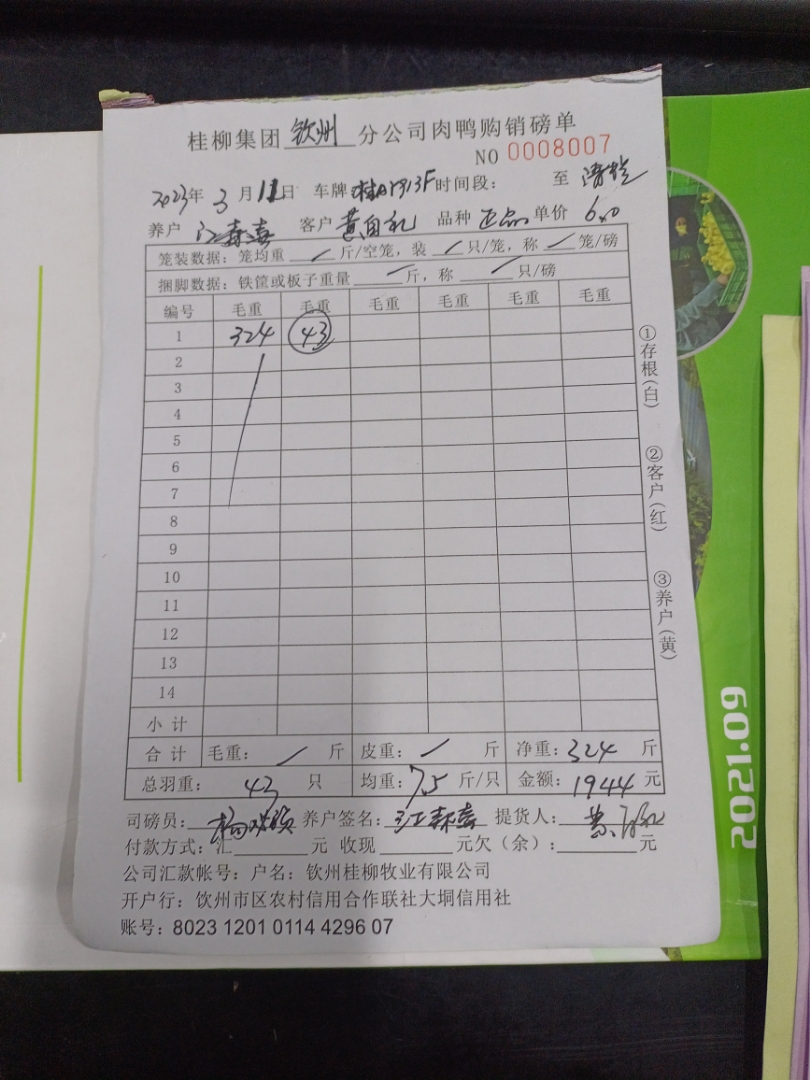 桂柳集团 钦州 分公司肉鸭购销磅单
NO 0008007
2023年 3 月 11日 车牌 时间段： 至
养户 江森喜 客户 黄自礼 品种 正品 单价 6.0
笼装数据：笼均重 / 斤/空笼，装 / 只/笼，称 / 笼/磅
捆脚数据：铁筐或板子重量 / 斤，称 / 只/磅
编号 毛重 毛重 毛重 毛重 毛重 毛重
1 324 43
2
3
4
5
6
7
8
9
10
11
12
13
14
小计
合计 毛重： / 斤 皮重： / 斤 净重：324 斤
总羽重： 43 只 均重：7.5 斤/只 金额：1944 元
司磅员： 养户签名：江森喜 提货人：
付款方式：汇 元 收现 元欠（余）： 元
公司汇款帐号：户名：钦州桂柳牧业有限公司
开户行：钦州市区农村信用合作联社大垌信用社
账号：8023 1201 0114 4296 07
①存根（白）
②客户（红）
③养户（黄）
2021.09